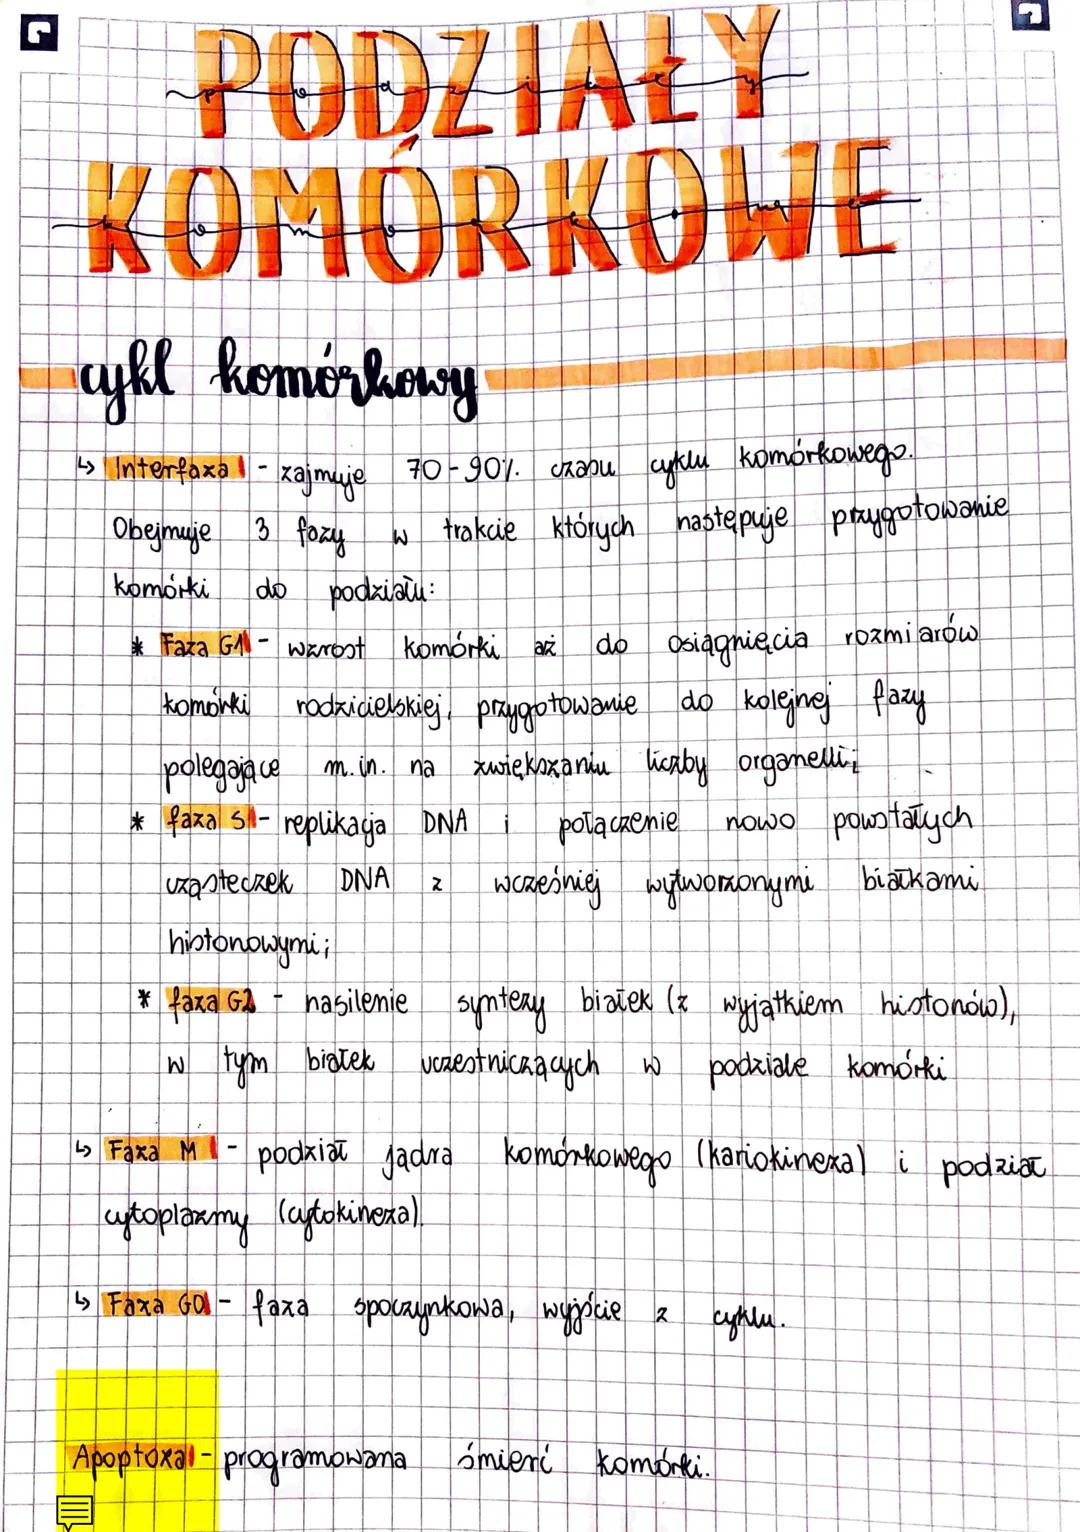 PODZIAŁY
podziały
KOMÓRKOWE
komórkowe
cykl komórkowy
↳ Interfaza - zajmuje 70-90% czasu cyklu komórkowego.
Obejmuje 3 fazy w trakcie których następuje przygotowanie
komórki do podziału:
* Faza G1 - wzrost komórki aż do osiągnięcia rozmiarów
komórki rodzicielskiej, przygotowanie do kolejnej fazy
polegające m.in. na zwiększaniu liczby organelli;
* faza S - replikacja DNA i połączenie nowo powstałych
cząsteczek DNA z wcześniej wytworzonymi białkami
histonowymi;
* faza G2 - nasilenie syntezy białek (z wyjątkiem histonów),
w tym białek uczestniczących w podziale komórki
↳ Faza M - podział jądra komórkowego (kariokineza) i podział
cytoplazmy (cytokineza).
↳ Faza G0 - faza spoczynkowa, wyjście z cyklu.
Apoptoza - programowana śmierć komórki.